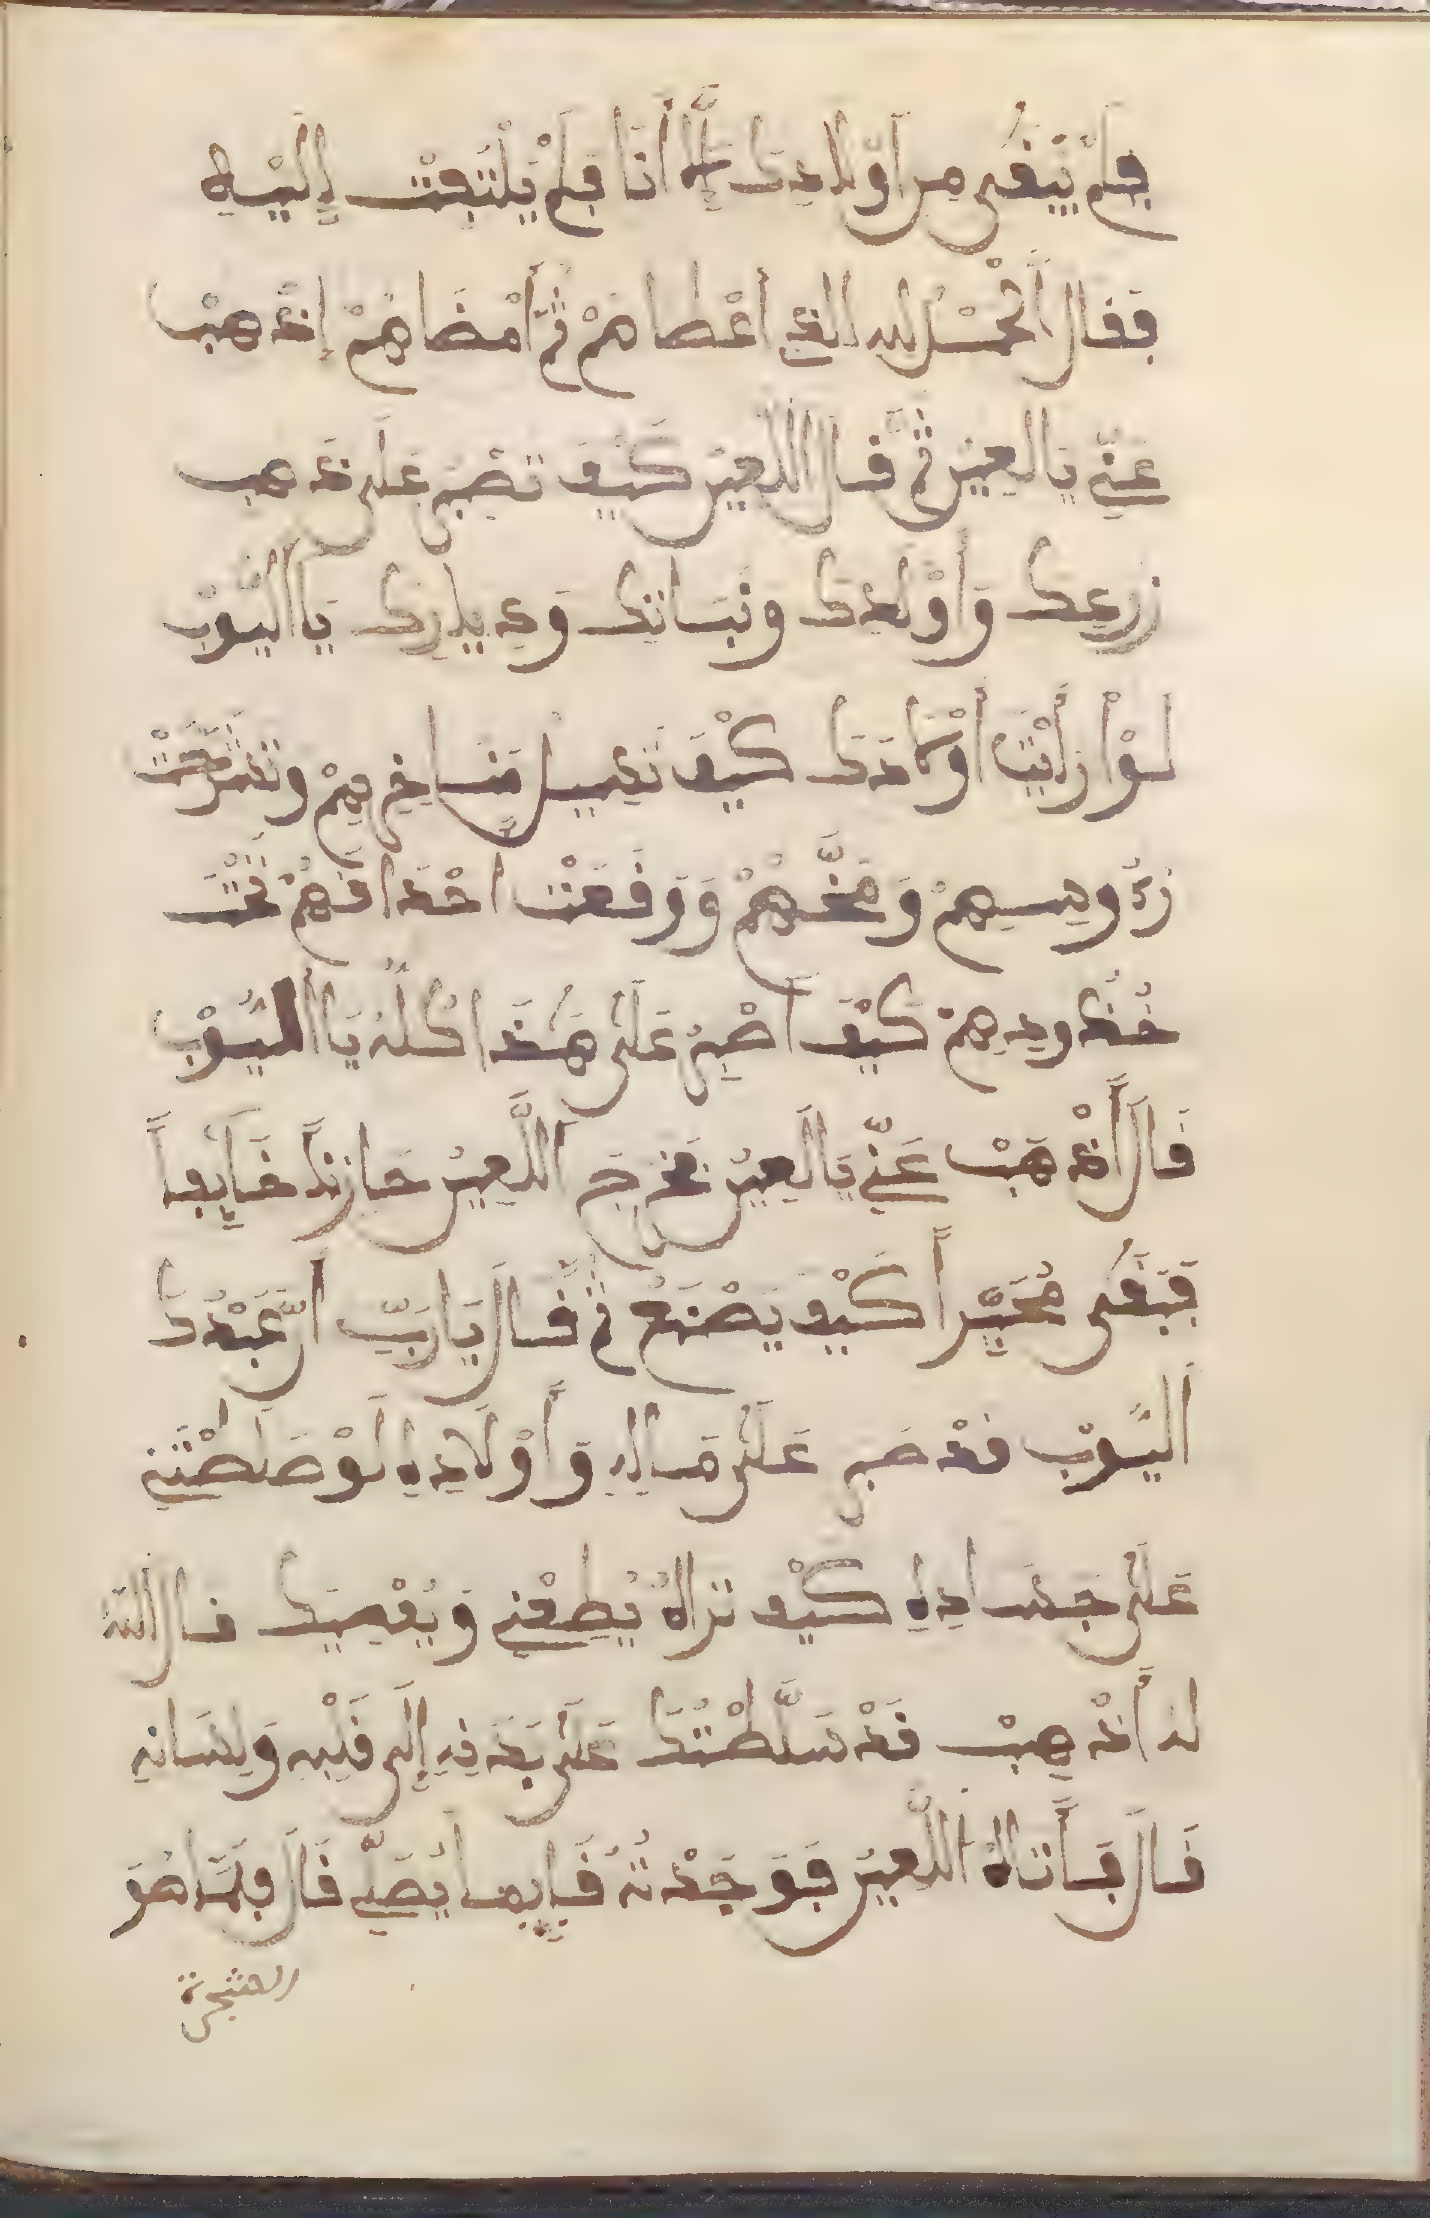 فلم يبقى من أولادك إلا أنا فلم يلتفت إليه
فقال الحمد لله الذي أعطاهم ثم أمضاهم إذهب
عني يا لعين ثم قال اللعين كيف تصبر على ذهب
زرعك وأولدك ونسانك وديارك يا اليوب
لوا رأيت أولادك كيف تسيل مناخرهم وتشرخت
رءوسهم ومخهم ووقعت احداقهم تحت
خدودهم كيف اصبر على هذا كله يا اليوب
قال أذهب عني يا لعين فخرج اللعين حازنا خايفا
فبقى محيرا كيف يصنع ثم قال يا رب ان عبدك
اليوب قد صبر على ماله وأولاده لو صلطتني
على جساده كيف تراه يطعني ويعصيك قال الله
له أذهب قد سلطتك على بدنه إلى قلبه ولسانه
قال فأتاه اللعين فوجدته قايما يصلي قال فلما هو